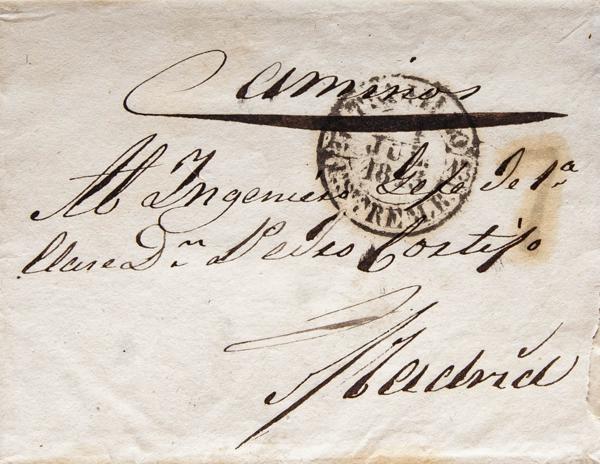 Caminos
Al Ingeniero Gefe de 1ª
Clase Dn. Pedro Cortijo
Madrid
JUL